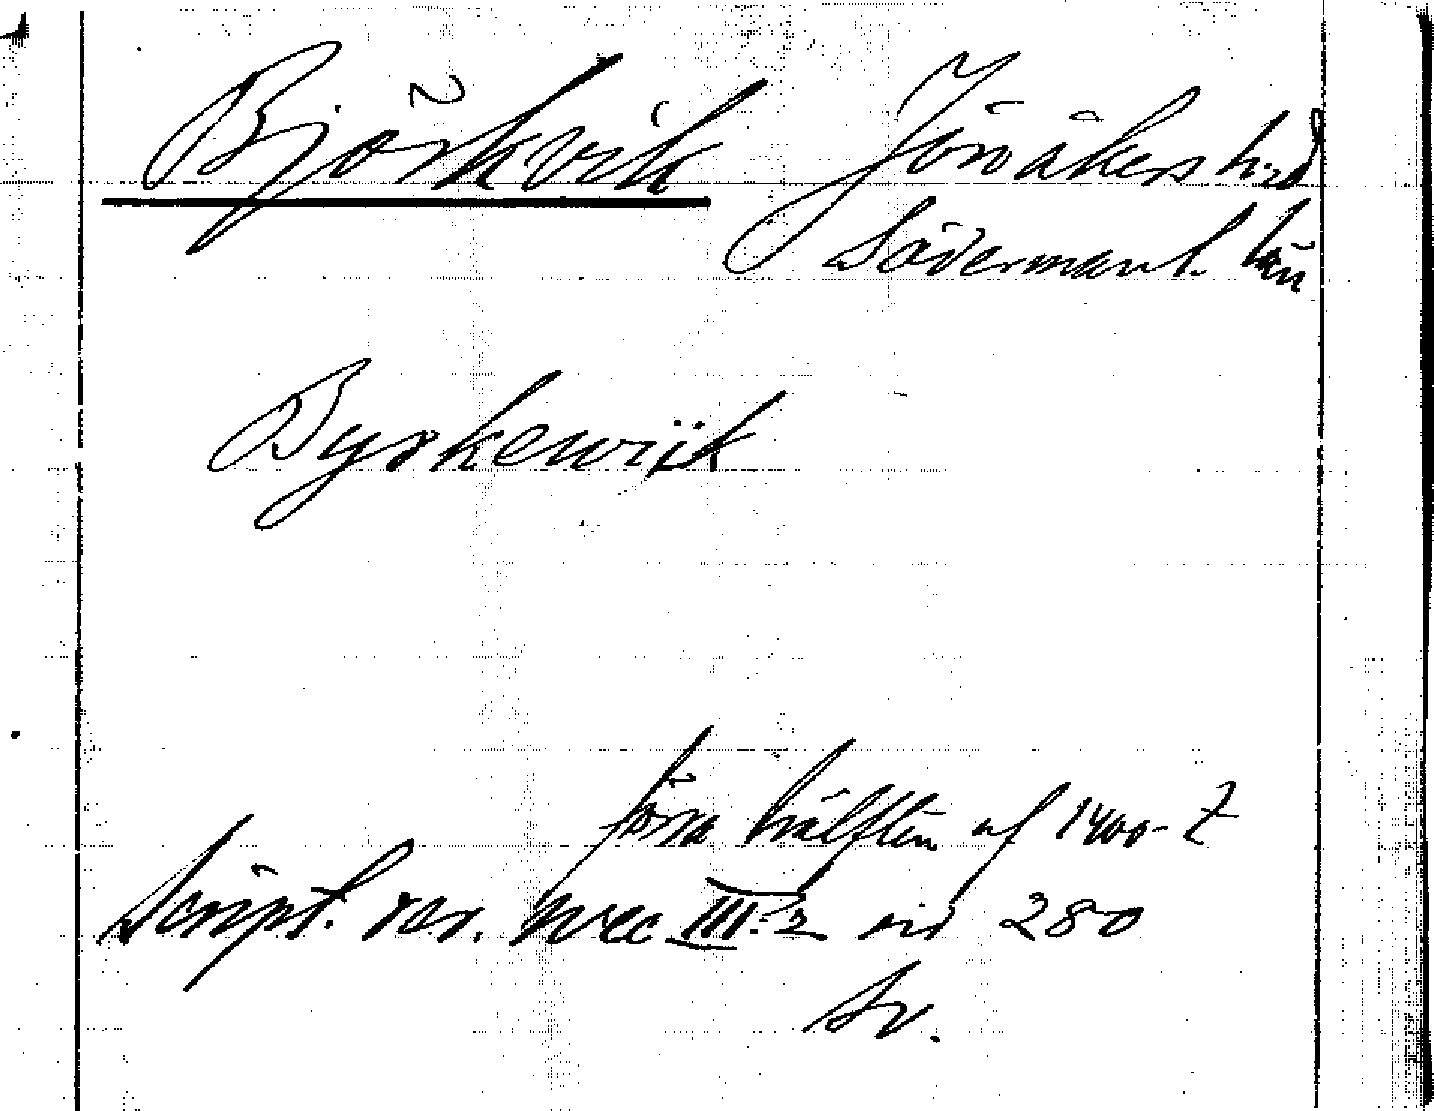 Björkvik Jönåkers h:d
Södermanl. län
Byrkewijk
förra hälften af 1400-t
Script. rer. svec III:2 sid 280
Sv.